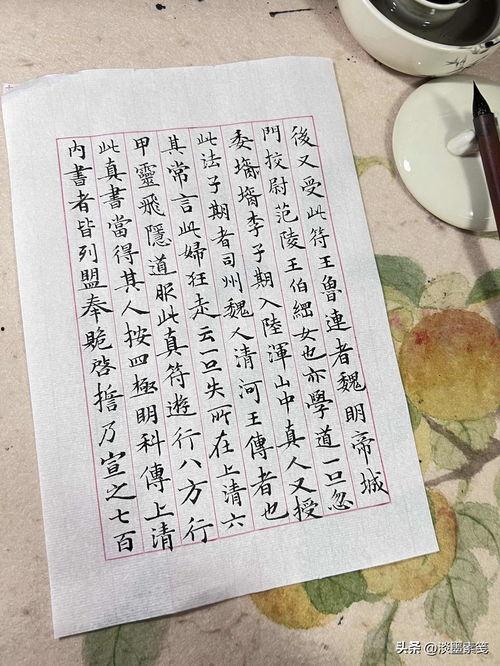 後又受此符王魯連者魏明帝城
門挍尉范陵王伯綱女也亦學道一旦忽
委壻壻李子期入陸渾山中真人又授
此法子期者司州魏人清河王傳者也
其常言此婦狂走云一旦失所在上清六
甲靈飛隱道服此真符遊行八方行
此真書當得其人按四極明科傳上清
內書者皆列盟奉貺啓誓乃宣之七百
头条 @淡墨素笺